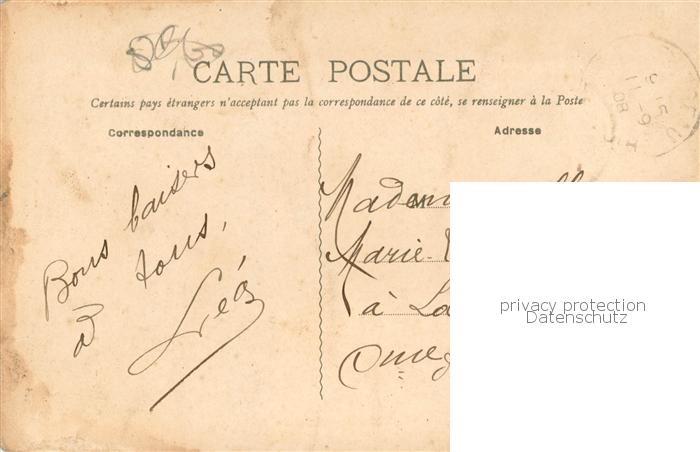 CARTE POSTALE
Certains pays étrangers n'acceptant pas la correspondance de ce côté, se renseigner à la Poste
Correspondance
Adresse
Bons baisers
à tous,
Léa
M
Marie
à
privacy protection
Datenschutz